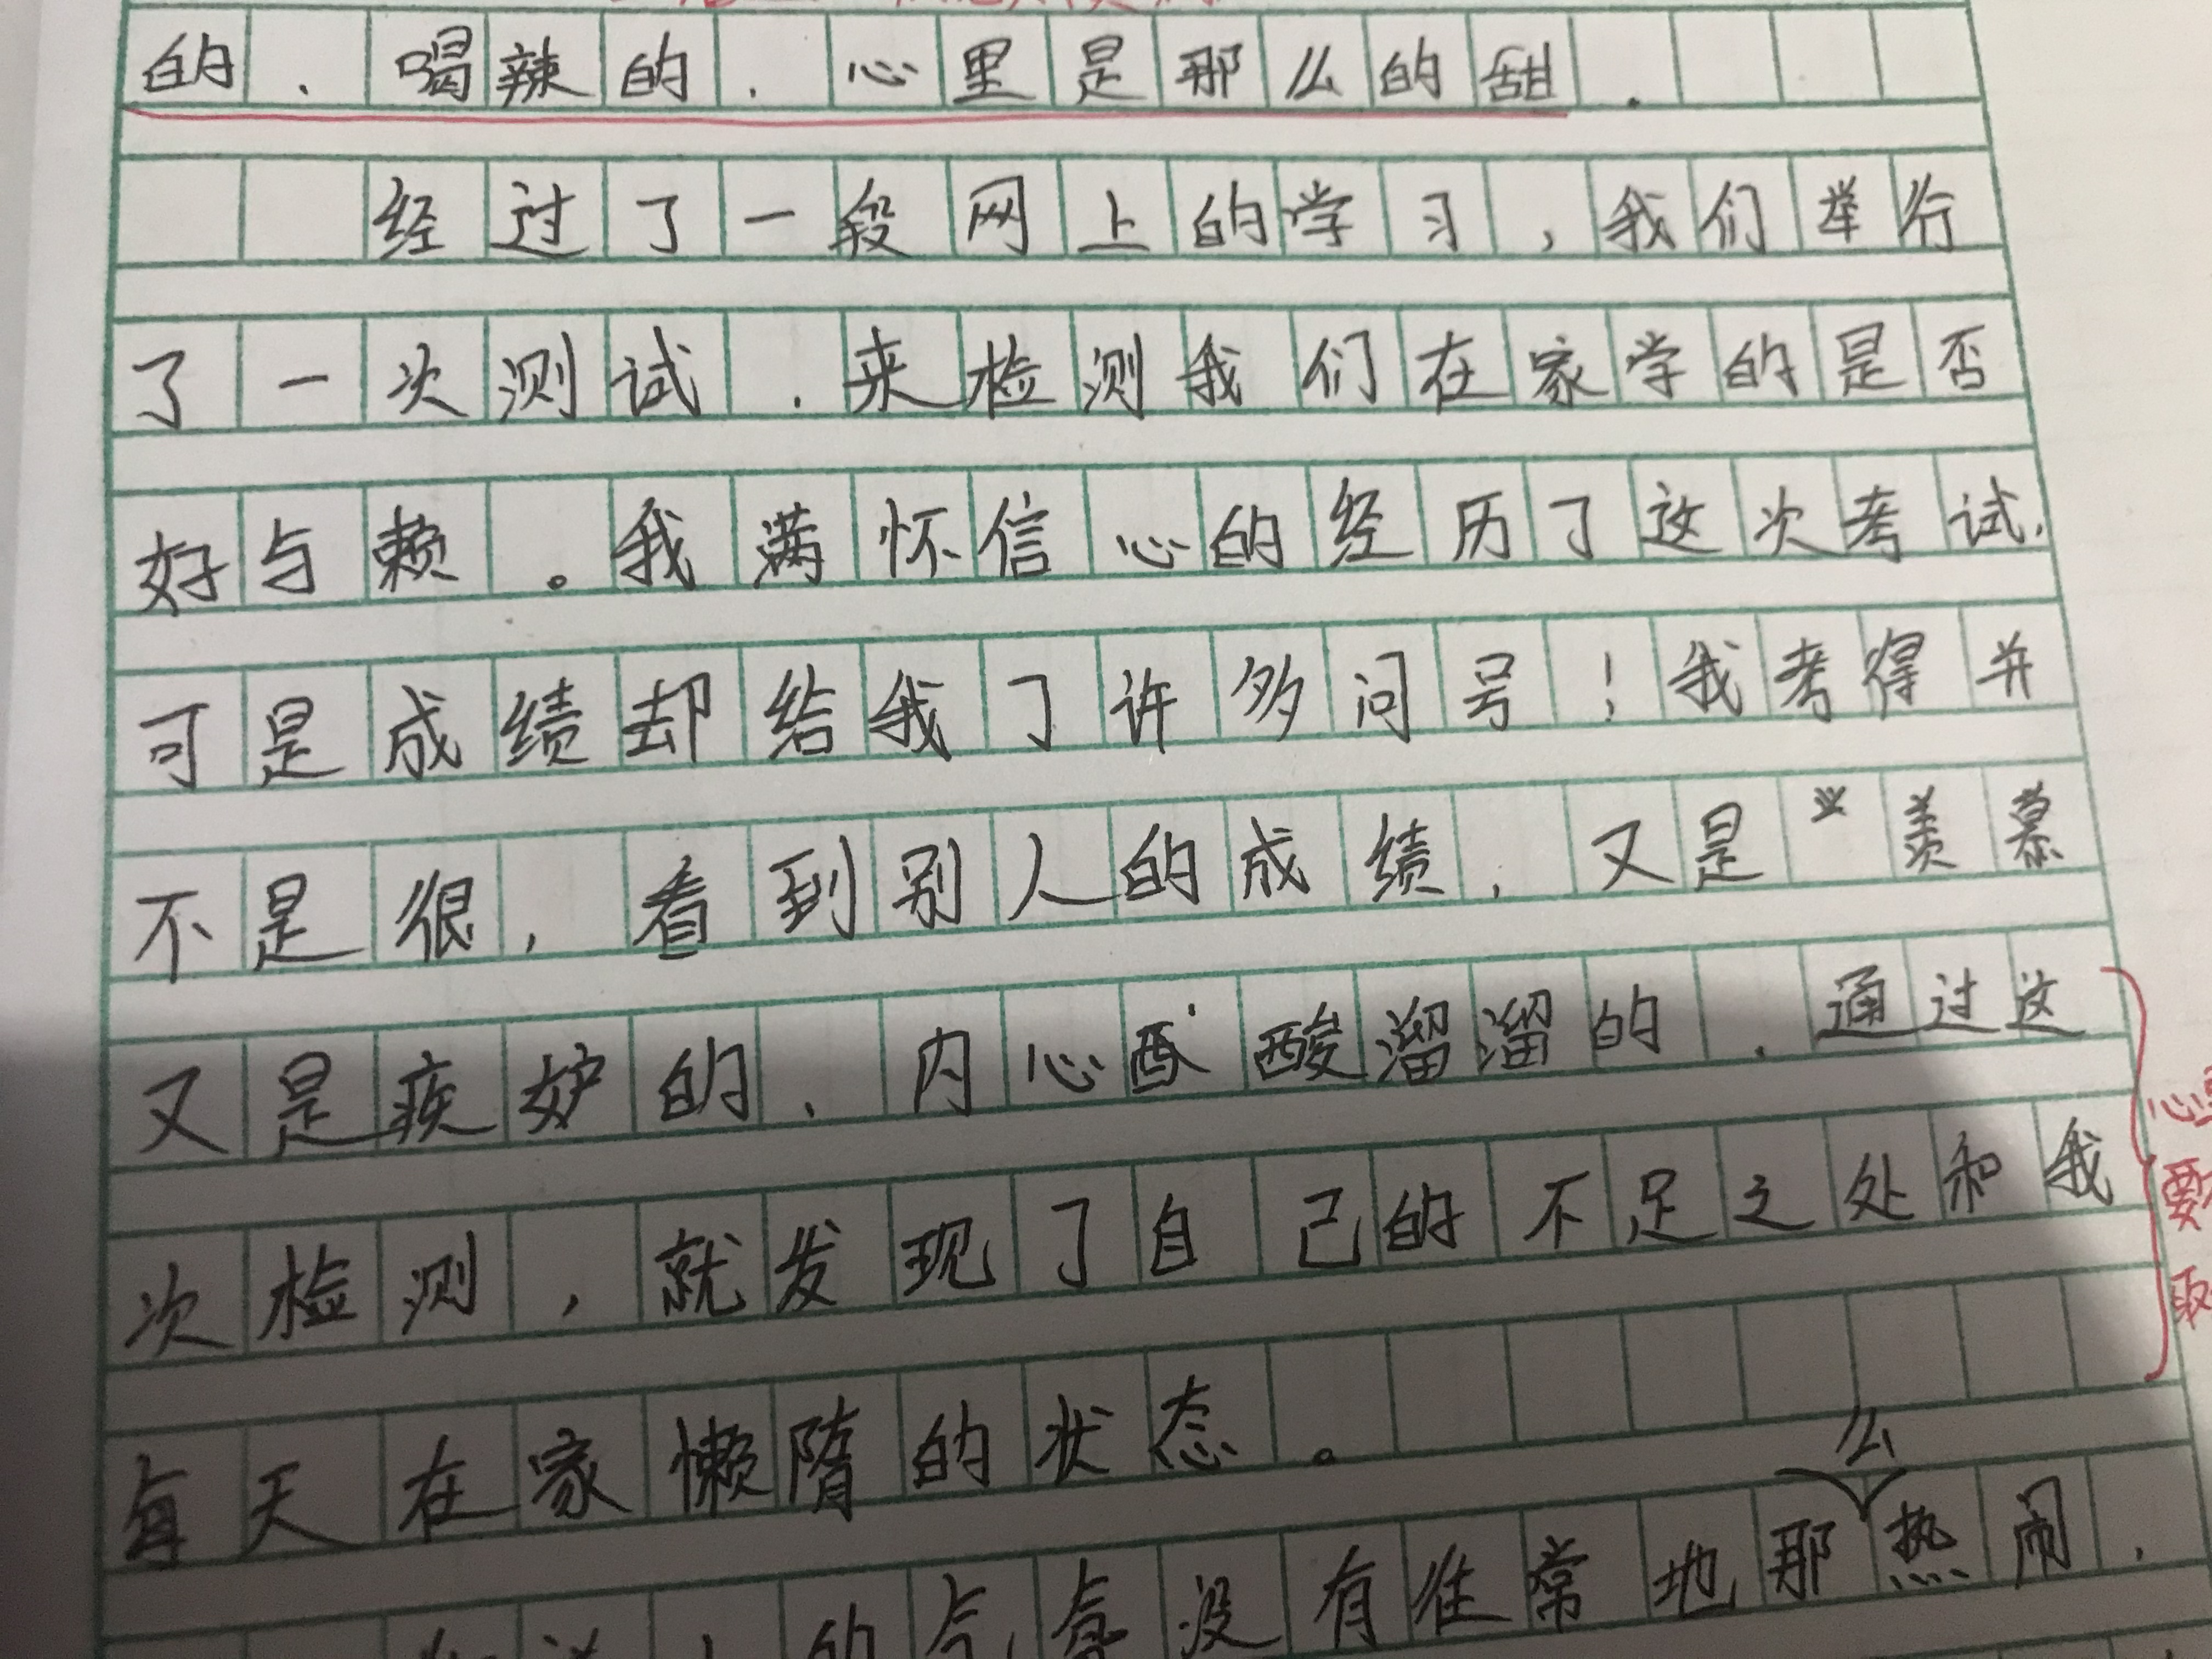 的，喝辣的，心里是那么的甜．
经过了一段网上的学习，我们举行
了一次测试，来检测我们在家学的是否
好与赖。我满怀信心的经历了这次考试，
可是成绩却给我了许多问号！我考得并
不是很，看到别人的成绩，又是羡慕
又是疾妒的，内心酸溜溜的．通过这
次检测，就发现了自己的不足之处和我
每天在家懒隋的状态。
么
的气氛没有往常地那热闹，
心
要
取